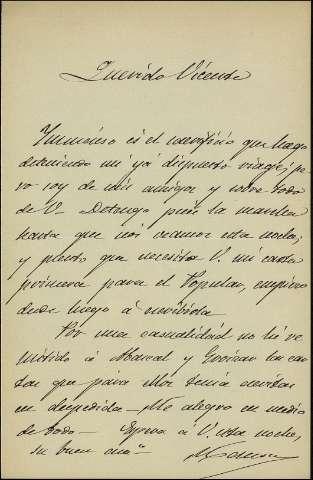 Querido Vicente
Inmenso es el sacrificio que hago
deteniendo mi ya dispuesto viage; pe-
ro soy de mis amigos y sobre todo
de V. Detengo pues la marcha
hasta que nos veamos esta noche;
y puesto que necesita V. mi carta
primera para el Popular, empiezo
desde luego á escribirla
Por una casualidad no he re-
mitido á Mascal y las car-
tas que para ellos tenia escritas
en despedida — Me alegro en medio
de todo — Espera á V. esta noche,
su buen am.º